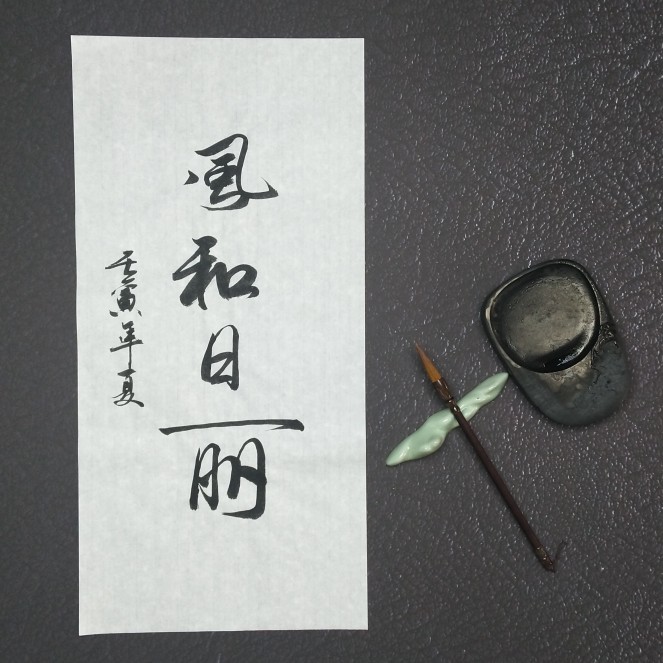 風和日丽
壬寅年夏